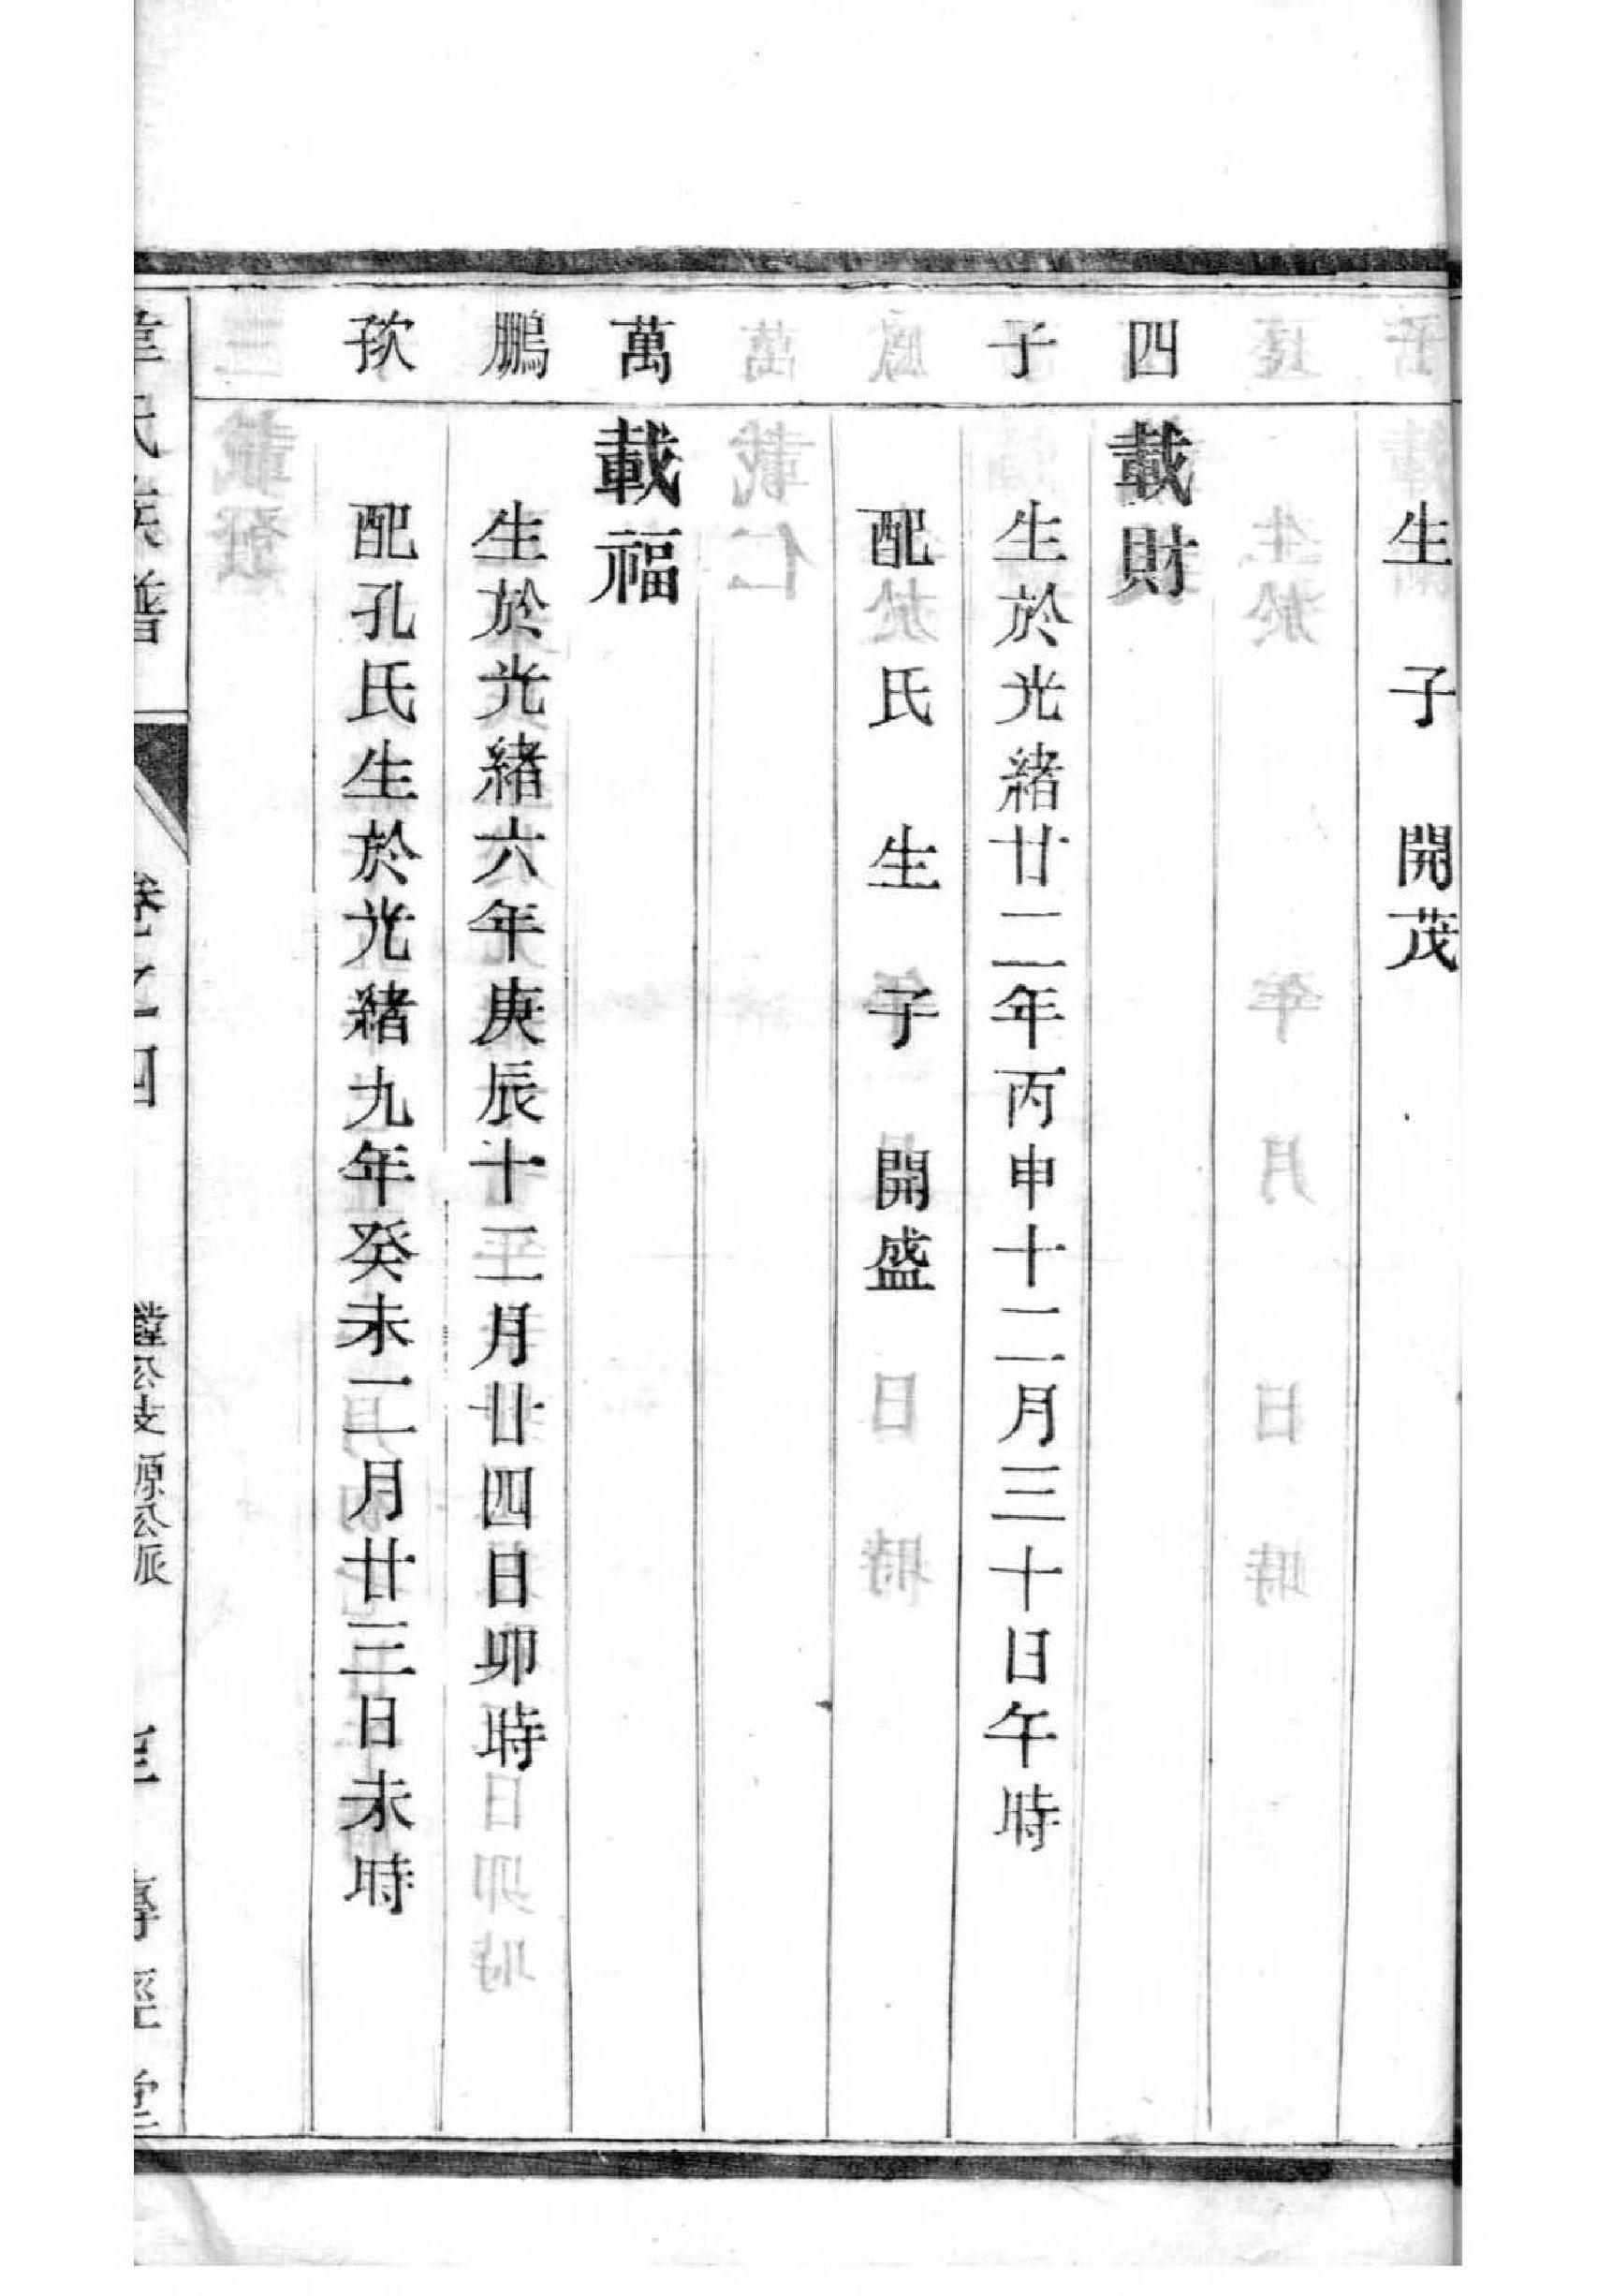 生　子　開茂
四
載財
子
生於光緒廿二年丙申十二月三十日午時
配　氏　生　子　開盛
萬
載福
鵬
生於光緒六年庚辰十二月廿四日卯時
孩
配孔氏生於光緒九年癸未二月廿三日未時
韋氏族譜　卷之四　鏜公支源公派　傳經堂